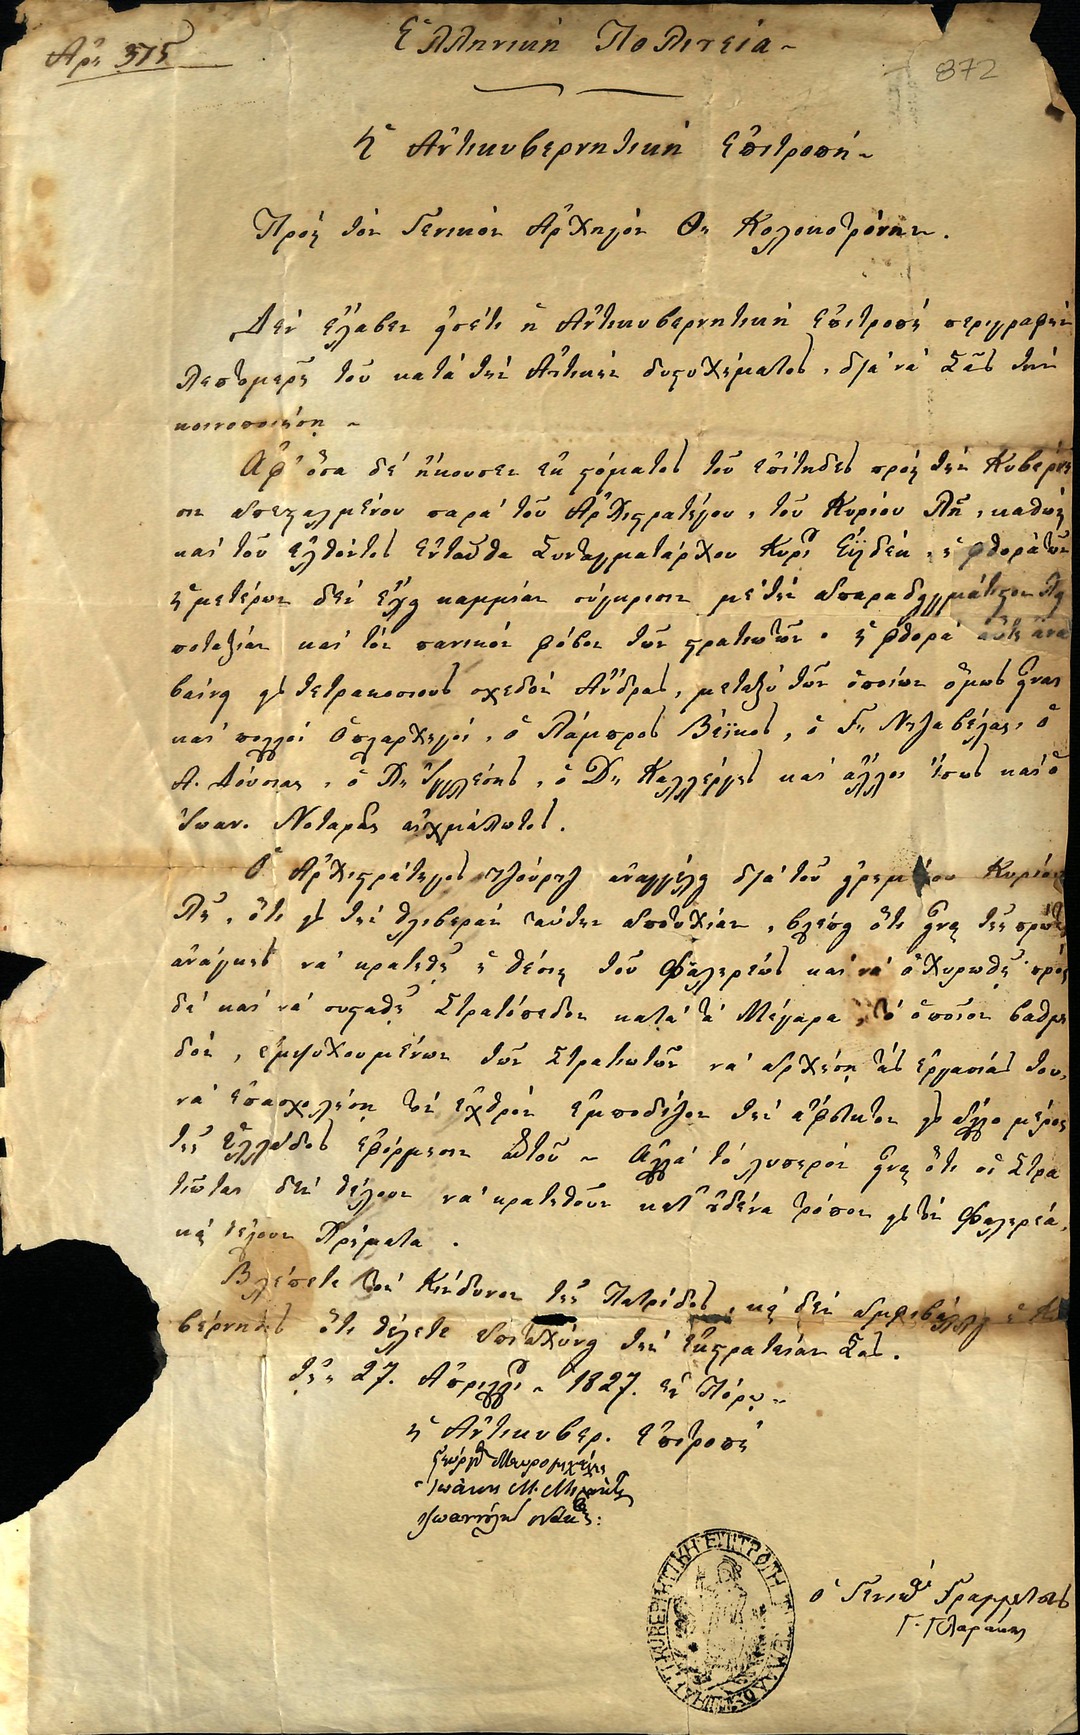 Ἀρ. 375
Ἑλληνικὴ Πολιτεία
872
Ἡ Ἀντικυβερνητικὴ Ἐπιτροπή
Πρὸς τὸν Γενικὸν Ἀρχηγὸν Θ. Κολοκοτρώνην.
Δὲν ἔλαβεν εἰσέτι ἡ Ἀντικυβερνητικὴ Ἐπιτροπὴ περιγραφὴν
λεπτομερῆ τοῦ κατὰ τὴν Ἀττικὴν δυστυχήματος, διὰ νὰ Σᾶς τὴν
κοινοποιήσῃ
Ἀφ' ὅσα δὲ ἤκουσεν ἐκ στόματος τοῦ ἐπίτηδες πρὸς τὴν Κυβέρνη
σιν ἀπεσταλμένου παρὰ τοῦ Ἀρχιστρατήγου, τοῦ Κυρίου Λῆ, καθὼς
καὶ τοῦ ἐλθόντος ἐνταῦθα Συνταγματάρχου Κυρ. Εϋδέκ, ἡ φθορὰ τῶν
ἡμετέρων δὲν ἔχει καμμίαν σύγκρισιν μὲ τὴν ἀπαραδειγμάτιστον λει
ποταξίαν καὶ τὸν πανικὸν φόβον τῶν στρατιωτῶν. ἡ φθορὰ αὕτη ἀνα
βαίνει εἰς τετρακοσίους σχεδὸν ἄνδρας, μεταξὺ τῶν ὁποίων ὅμως εἶναι
καὶ πολλοὶ ὁπλαρχηγοί, ὁ Λάμπρος Βέϊκος, ὁ Γ. Τζαβέλας, ὁ
ὁ Δ. Καλλέργης καὶ ἄλλοι ἴσως καὶ ὁ
Ἰωάν. Νοταρᾶς αἰχμάλωτος.
Ὁ Ἀρχιστράτηγος Τζούρτζ ἀναγγέλλει διὰ τοῦ εἰρημένου Κυρίου
Λῆ, ὅτι εἰς τὴν θλιβερὰν ταύτην ἀποτυχίαν, βλέπει ὅτι εἶναι τῆς πρώτης
ἀνάγκης νὰ κρατηθῇ ἡ θέσις τοῦ Φαληρέως καὶ νὰ ὀχυρωθῇ· πρὸς
δὲ καὶ νὰ συσταθῇ Στρατόπεδον κατὰ τὰ Μέγαρα, τὸ ὁποῖον βαθμη
δόν, ἐμψυχουμένων τῶν Στρατιωτῶν νὰ ἀρχίσῃ τὰς ἐργασίας του,
νὰ ἐπασχολήσῃ τὸν ἐχθρὸν ἐμποδίζον τὴν εἰς ἄλλο μέρος
τῆς Ἑλλάδος ἐφόρμησιν αὐτοῦ ~ Ἀλλὰ τὸ λυπηρὸν εἶναι ὅτι οἱ Στρα
τιῶται δὲν θέλουν νὰ κρατηθοῦν κατ' οὐδένα τρόπον εἰς τὸν Φαληρέα,
καὶ θέλουν χρήματα.
Βλέπετε τὸν Κίνδυνον τῆς Πατρίδος, καὶ δὲν ἀμφιβάλλει ἡ Κυ
βέρνησις ὅτι θέλετε ἐπιταχύνει τὴν ἐκστρατείαν Σας.
τῇ 27. Ἀπριλλίου 1827. ἐν Πόρῳ
ἡ Ἀντικυβερ. Ἐπιτροπὴ
Γεώργιος Μαυρομιχάλης
Ἰωάννης Μ. Μιλαήτης
Ἰωαννούλης Νάκος
Η ΑΝΤΙΚΥΒΕΡΝΗΤΙΚΗ ΕΠΙΤΡΟΠΗ ΤΗΣ ΕΛΛΑΔΟΣ
ὁ Γενικὸς Γραμματεὺς
Γ. Γλαράκης